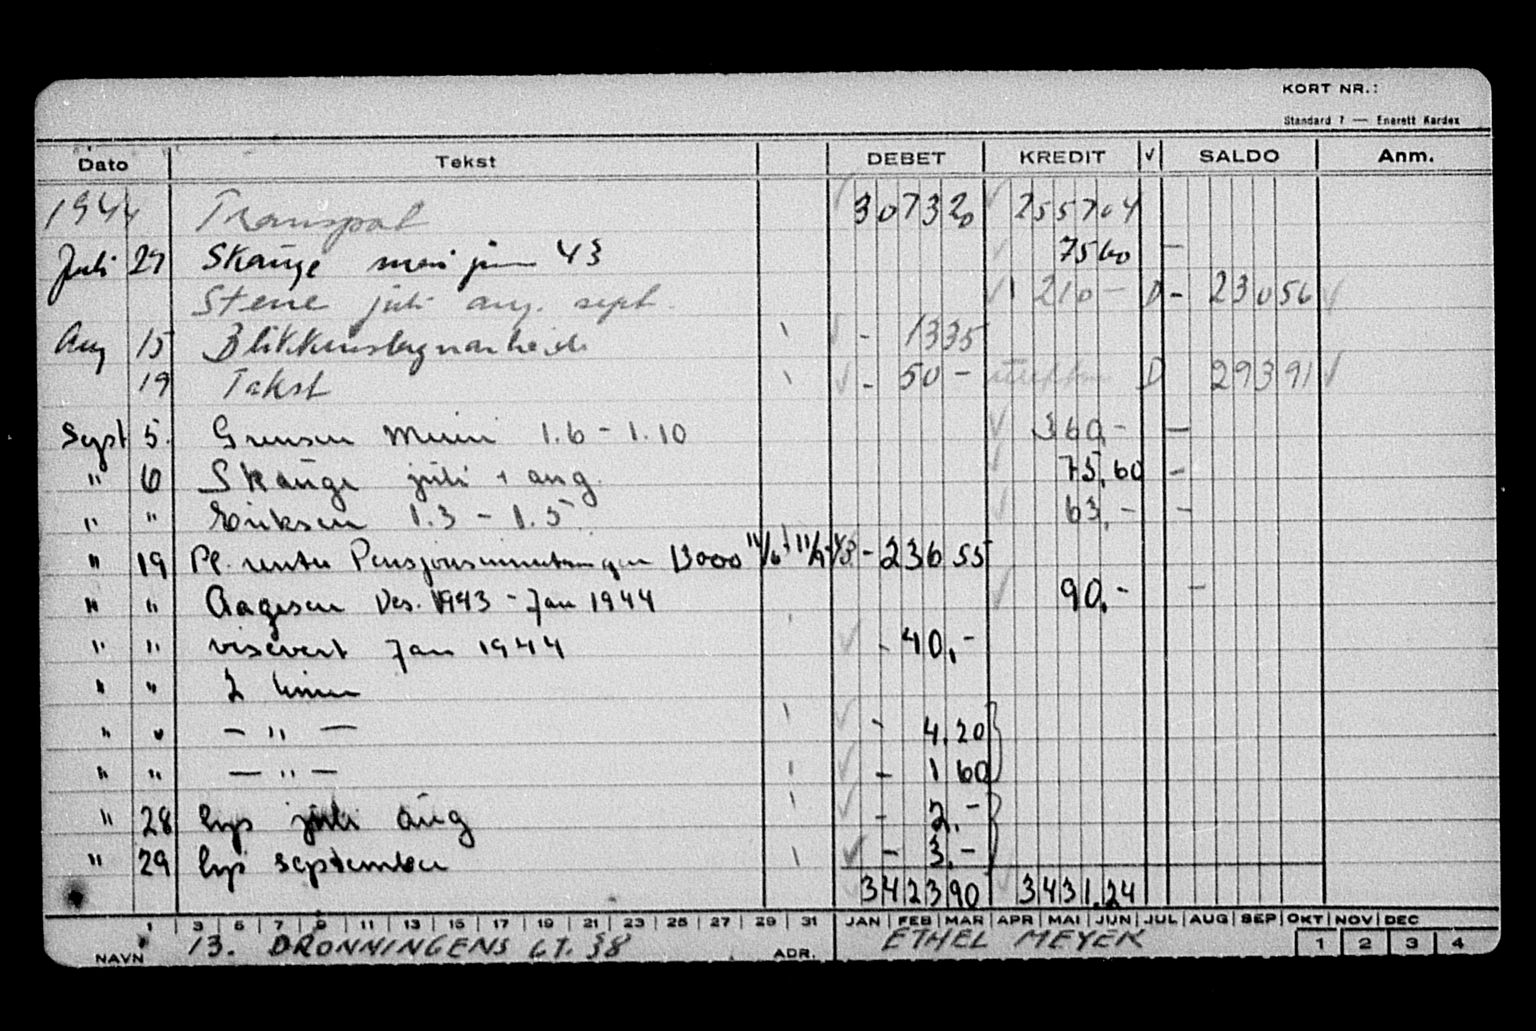 KORT NR.:
Standard 7 — Enerett Kardex
Dato Tekst DEBET KREDIT √ SALDO Anm.
1944 Transport 30732 2557 04
Juli 27 Skauge mai juni 43 75 60 -
Stene juli aug. sept. 210 - D - 230 56
Aug 15 - 13 35
19 Takst - 50 - D 293 91
Sept 5. Grensen 1.6 - 1.10 360,- -
" 6 Skauge juli + aug. 75,60 -
" " Eriksen 1.3 - 1.5 63,- -
" 19 Pl. renter 13000 - 236 55
" " Aagesen Des. 1943 - Jan 1944 90,- -
" " visevert Jan 1944 - 40,-
" " 2
" " — " — - 4,20
" " — " — - 1 60
" 28 lys juli aug - 2,-
" 29 lys september - 3,-
3423,90 3431,24
1 3 5 7 9 11 13 15 17 19 21 23 25 27 29 31 JAN FEB MAR APR MAI JUN JUL AUG SEP OKT NOV DEC
NAVN 13. DRONNINGENS GT. 38 ADR. ETHEL MEYER 1 2 3 4